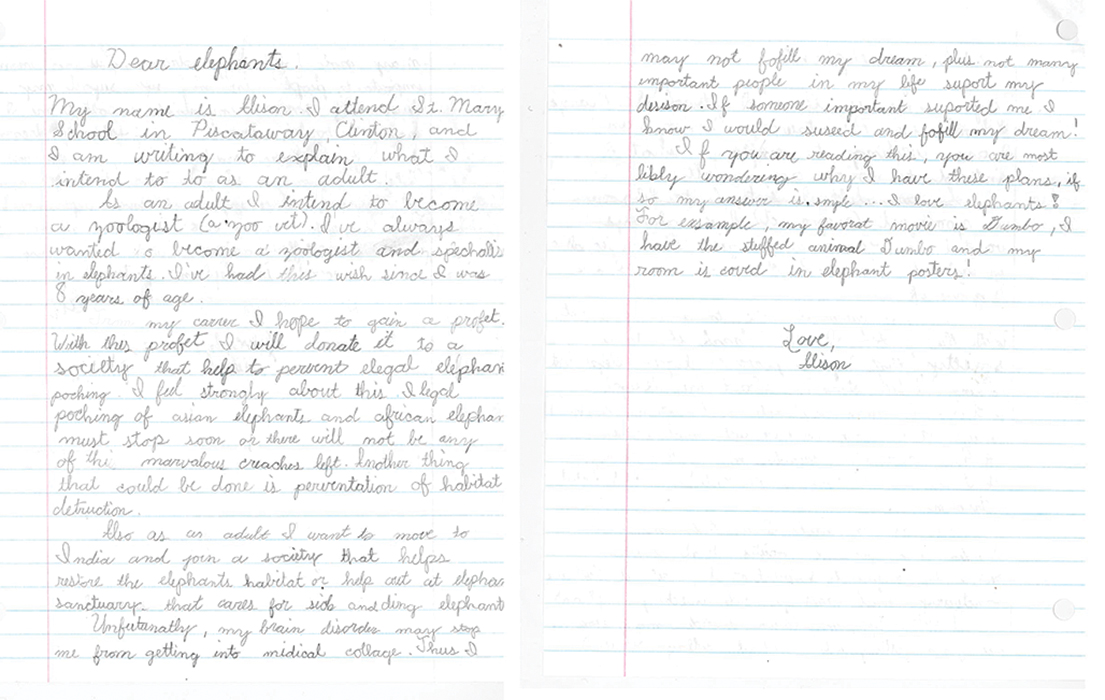 Dear elephants.
My name is Alison. I attend St. Mary
School in Piscataway, Clinton, and
I am writing to explain what I
intend to to as an adult.
As an adult I intend to become
a zoologist (a zoo vet). I've always
wanted o become a zoologist and spechalis
in elphants. I've had this wish since I was
8 years of age.
my carrer I hope to gain a profet.
With this profet I will donate it to a
socielty that help to pervent elegal elephan
poching. I feel strongly about this. Ilegal
poching of asian elephants and african elephan
must stop soon or there will not be any
of the marvalous creaches left. Another thing
that could be done is perventation of habitat
detruction.
Also as an adult I want to move to
India and join a society that helps
restore the elephants habitat or help out at elephan
sanctuary that cares for sick and ding elephant
Unfortunatly, my brain disorder may stop
me from getting into midical collage. Thus I
may not fofill my dream, plus not many
important people in my life suport my
desison. If someone important suported me I
know I would suseed and fofill my dream!
If you are reading this, you are most
libly wondering why I have these plans, if
so my answer is smple ... I love elephants!
For exsample, my favorat movie is Dumbo, I
have the stuffed animal Dumbo and my
room is coverd in elephant posters!
Love,
Alison